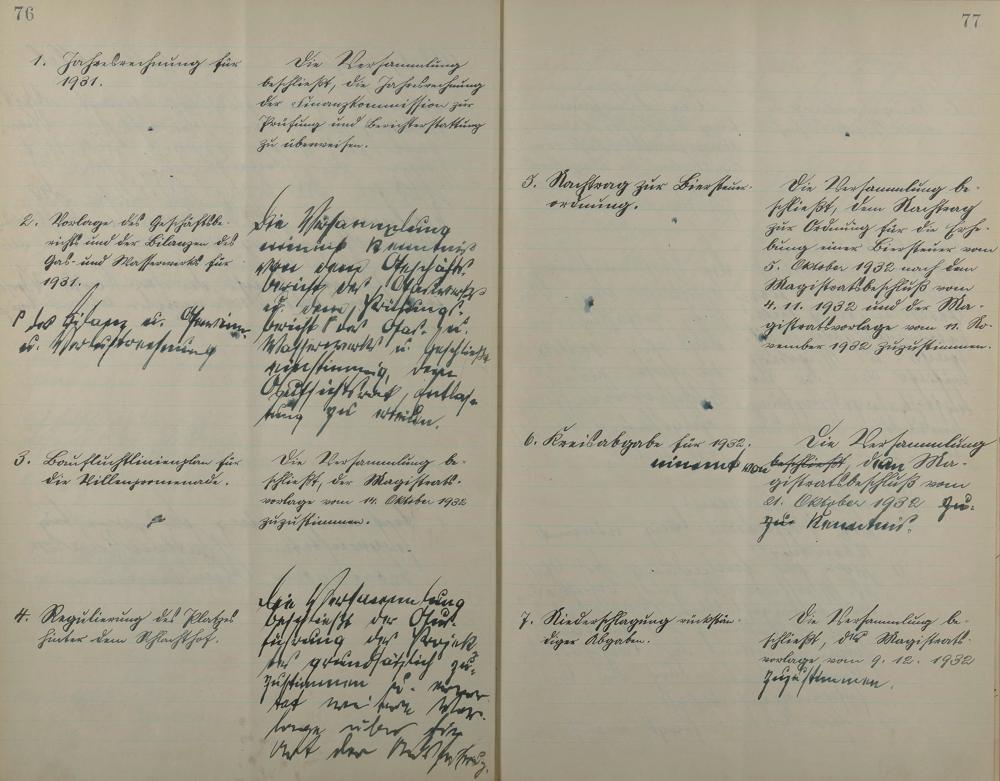 76
1. Jahresrechnung für
1931.
Die Versammlung
beschließt, die Jahresrechnung
der Finanzkommission zur
Prüfung und Berichterstattung
zu überweisen.
2. Vorlage des Geschäftsbe-
richts und der Bilanzen des
Gas- und Wasserwerks für
1931.
des Bilanz u. Gewinn-
u. Verlustrechnung
Die Versammlung
nimmt Kenntnis
von dem Geschäfts-
bericht des
u. dem Prüfungs-
bericht des Gas- u.
Wasserwerks u. beschließt
einstimmig, dem
Aufsichtsrat, Entlas-
tung zu erteilen.
3. Baufluchtlinienplan für
die Villenpromenade.
Die Versammlung be-
schließt, der Magistrats-
vorlage vom 14. Oktober 1932
zuzustimmen.
4. Regulierung des Platzes
hinter dem Schlachthof.
Die Versammlung
beschließt der Aus-
führung des Projek-
tes grundsätzlich zu-
zustimmen u.
weitere Vor-
lage über die
Art der
77
5. Nachtrag zur Biersteuer-
ordnung.
Die Versammlung be-
schließt, dem Nachtrag
zur Ordnung für die Erhe-
bung einer Biersteuer vom
5. Oktober 1932 nach dem
Magistratsbeschluß vom
4. 11. 1932 und der Ma-
gistratsvorlage vom 11. No-
vember 1932 zuzustimmen.
6. Kreisabgabe für 1932.
Die Versammlung
nimmt von beschließt, dem Ma-
gistratsbeschluß vom
21. Oktober 1932 zu-
zur Kenntnis.
7. Niederschlagung rückstän-
diger Abgaben.
Die Versammlung be-
schließt, der Magistrats-
vorlage vom 9. 12. 1932
zuzustimmen.